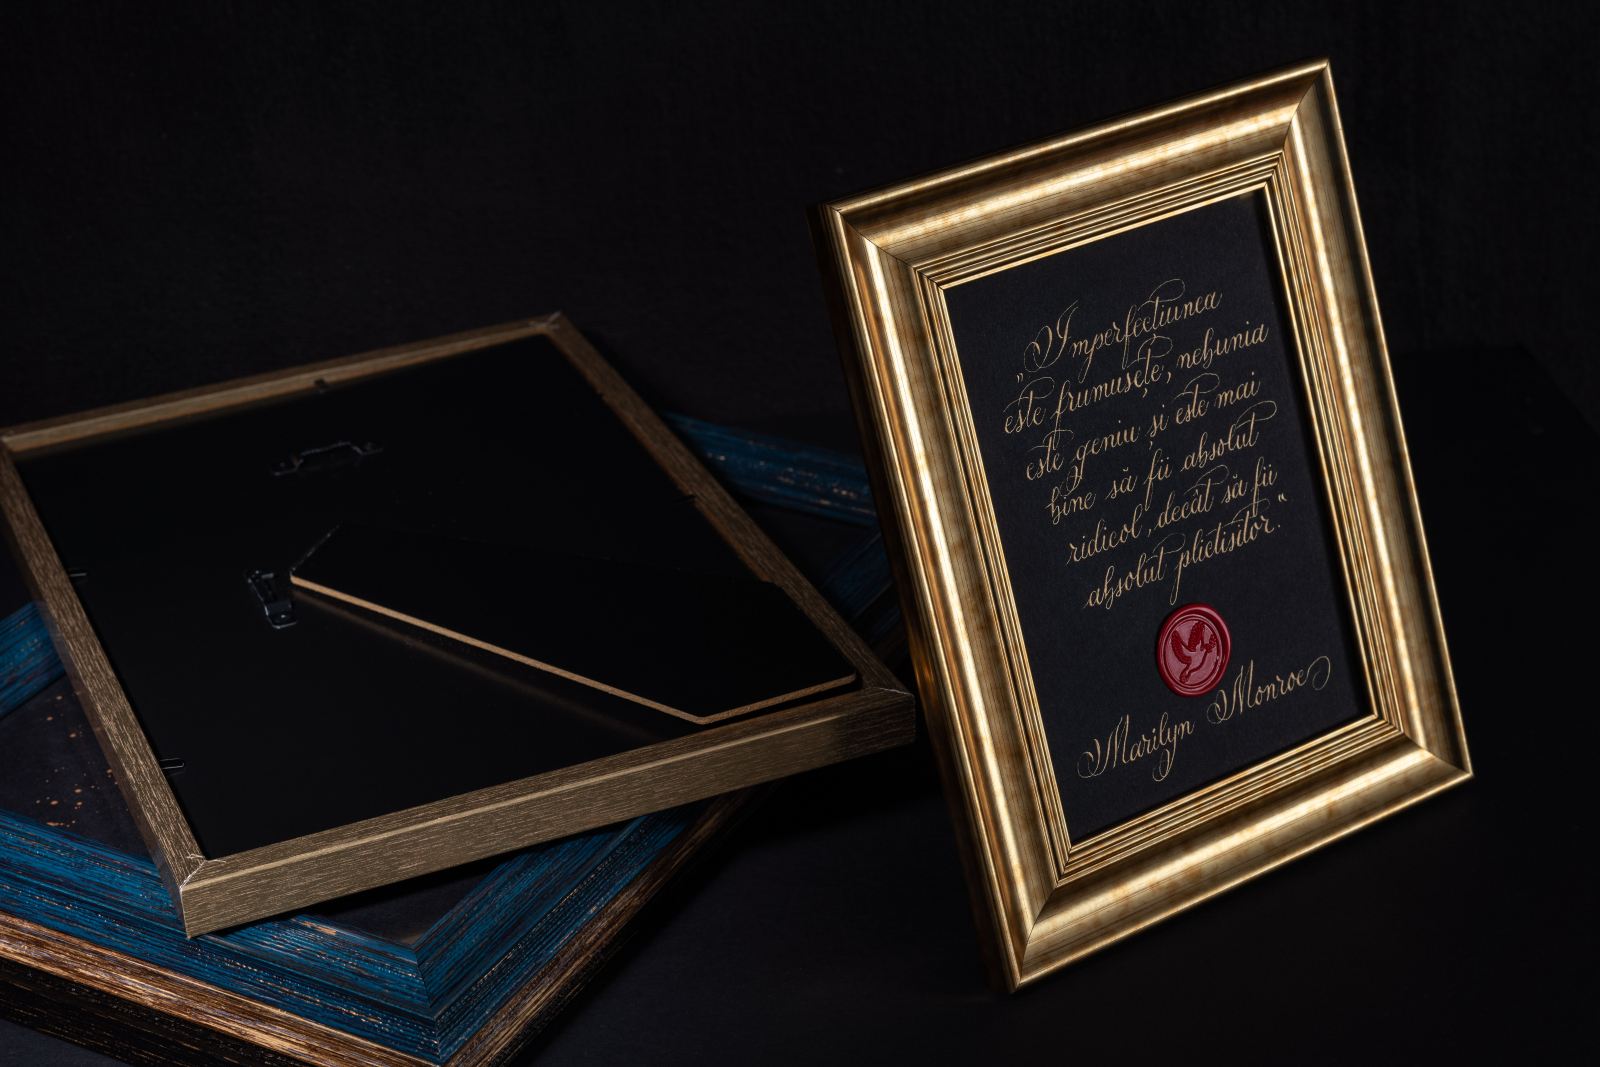 „Imperfecțiunea
este frumusețe, nebunia
este geniu și este mai
bine să fii absolut
ridicol, decât să fii
absolut plictisitor.“
Marilyn Monroe